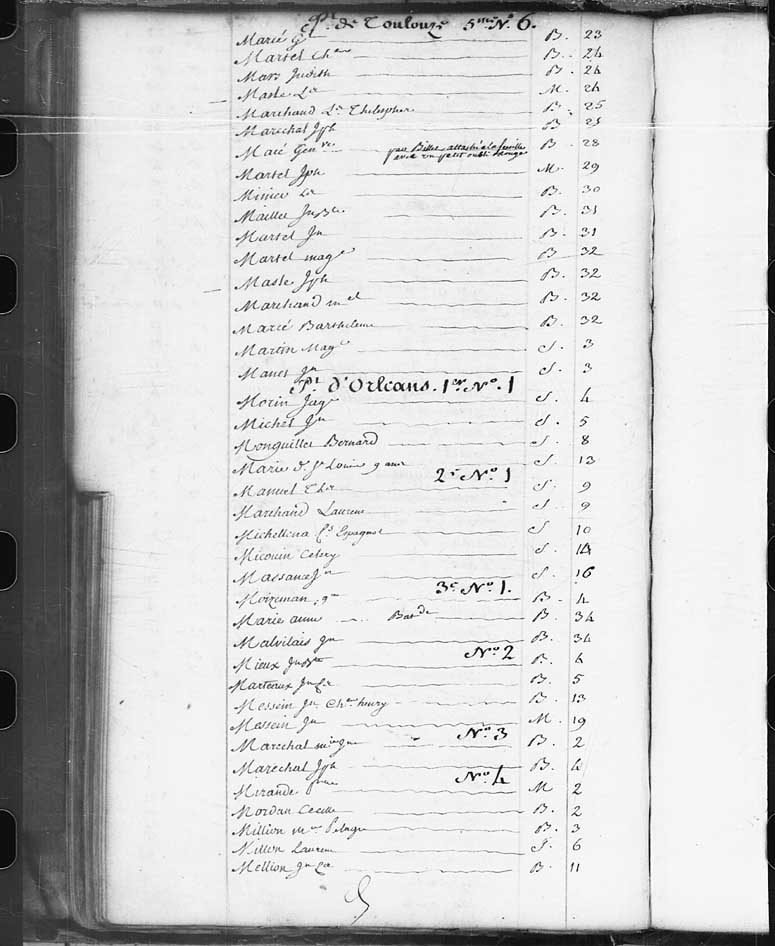 Pt. de Toulouze 5me No. 6.
Marié B. 23
Martel Chne B. 24
Mars Judith B. 24
Masle Le M. 24
Marchand Ls. Thelesphor B. 25
Marechal Jph B 25
Macé Genve par Billet attaché à la feuille B. 28
avec un petit oubli Rouge
Martel Jph M. 29
Minier Le B. 30
Maillet Jn Bte B. 31
Martel Jn B. 31
Martel mage B 32
Masle Jph B. 32
Marchand mel B. 32
Marié Barthelemi B. 32
Martin Mage S. 3
Manet Jn S. 3
Pt. d'Orleans. 1er No. 1
Morin Jaqe S. 4
Michel Jn S. 5
Monguillet Bernard S. 8
Marie d. St Louin 9 ans S. 13
2e No. 1
Manuel Ths S. 9
Marchand Laurens S 9
Michellena Espagnol S 10
Micouin S. 14
Massance Jn S. 16
3e No. 1.
Moizeman B. 4
Marie anne Batde B. 34
Malvilais Jn B. 34
No. 2
Mieux Jn Bte B. 4
Marteaux Jn B. 5
Messein Jn Chs henry B. 13
Messein Jn M. 19
No. 3
Marechal B. 2
Marechal Jph B. 4
No. 4
Mirande M 2
Mordan Cecille B. 2
Million me Pelagie B. 3
Millon Laurens S. 6
Mellion Jn B. 11